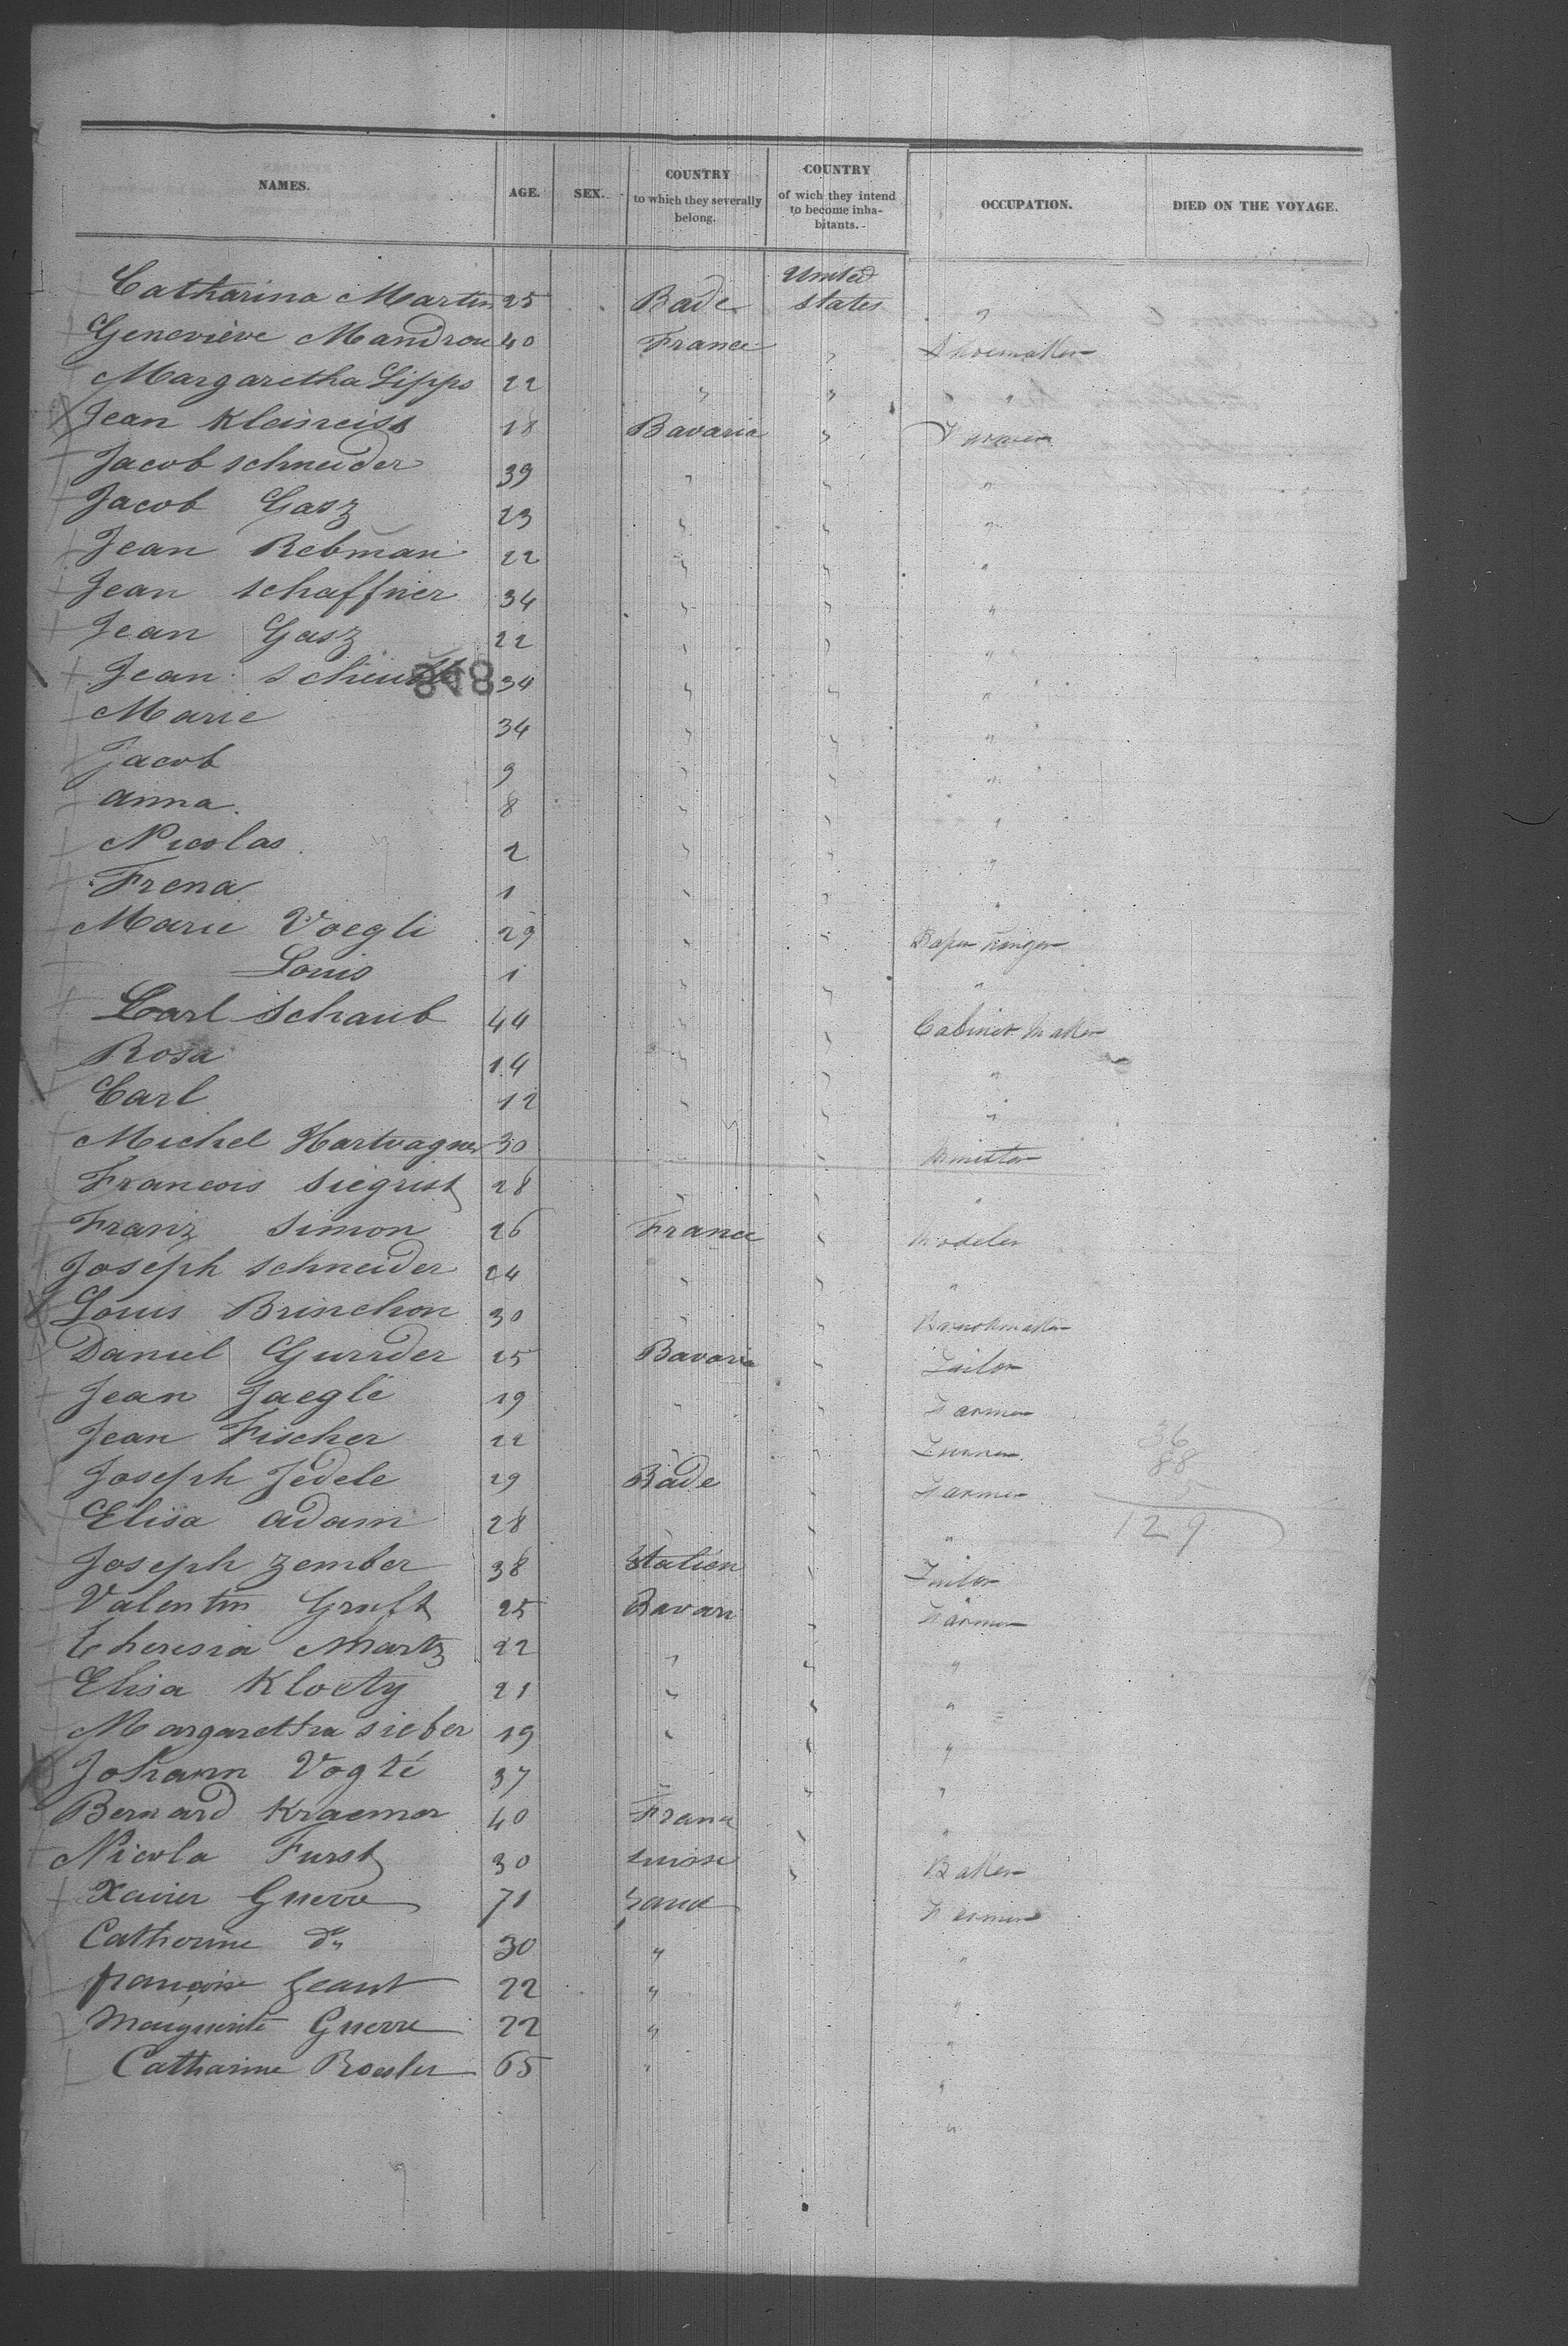 NAMES. AGE. SEX. COUNTRY to which they severally belong. COUNTRY of wich they intend to become inhabitants. OCCUPATION. DIED ON THE VOYAGE.
Catharina Martin 25 Bade United States "
Geneviève Mandrou 40 France " Shoemaker
Margaretha Lipps 22 " " "
Jean Kleinreiss 18 Bavaria " Farmer
Jacob Schneider 39 " " "
Jacob Gasz 23 " " "
Jean Rebman 22 " " "
Jean Schaffner 34 " " "
Jean Gasz 22 " " "
Jean 34 " " "
848
Marie 34 " " "
Jacob 9 " " "
Anna 8 " " "
Nicolas 2 " " "
Frena 1 " " "
Marie Voegli 29 " " Paper hanger
Louis 1 " " "
Carl Schaub 44 " " Cabinet Maker
Rosa 14 " " "
Carl 12 " " "
Michel Hartvagner 30 " " Minister
Francois Siegrist 28 " " "
Franz Simon 26 France " Modeler
Joseph Schneider 24 " " "
Louis Brinchon 30 " "
Daniel Gurrder 25 Bavaria " Tailor
Jean Jaeglé 19 " " Farmer
Jean Fischer 22 " " Turner
Joseph Jedele 29 Bade " Farmer
36
88
5
129
Elisa Adam 28 " " "
Joseph Zember 38 Italien " Tailor
Valentin Gruft 25 Bavari " Farmer
Theresia Martz 22 " " "
Elisa Kloety 21 " " "
Margaretha Sieber 19 " " "
Johann Vogté 37 " " "
Bernard Kraemer 40 France " "
Nicola Furst 30 Suisse " Baker
Xavier Guerre 71 Farmer
Catherine do 30 " "
françoise Geant 22 " "
Marguerite Guerre 22 " "
Catharine Roesler 65 " "
"